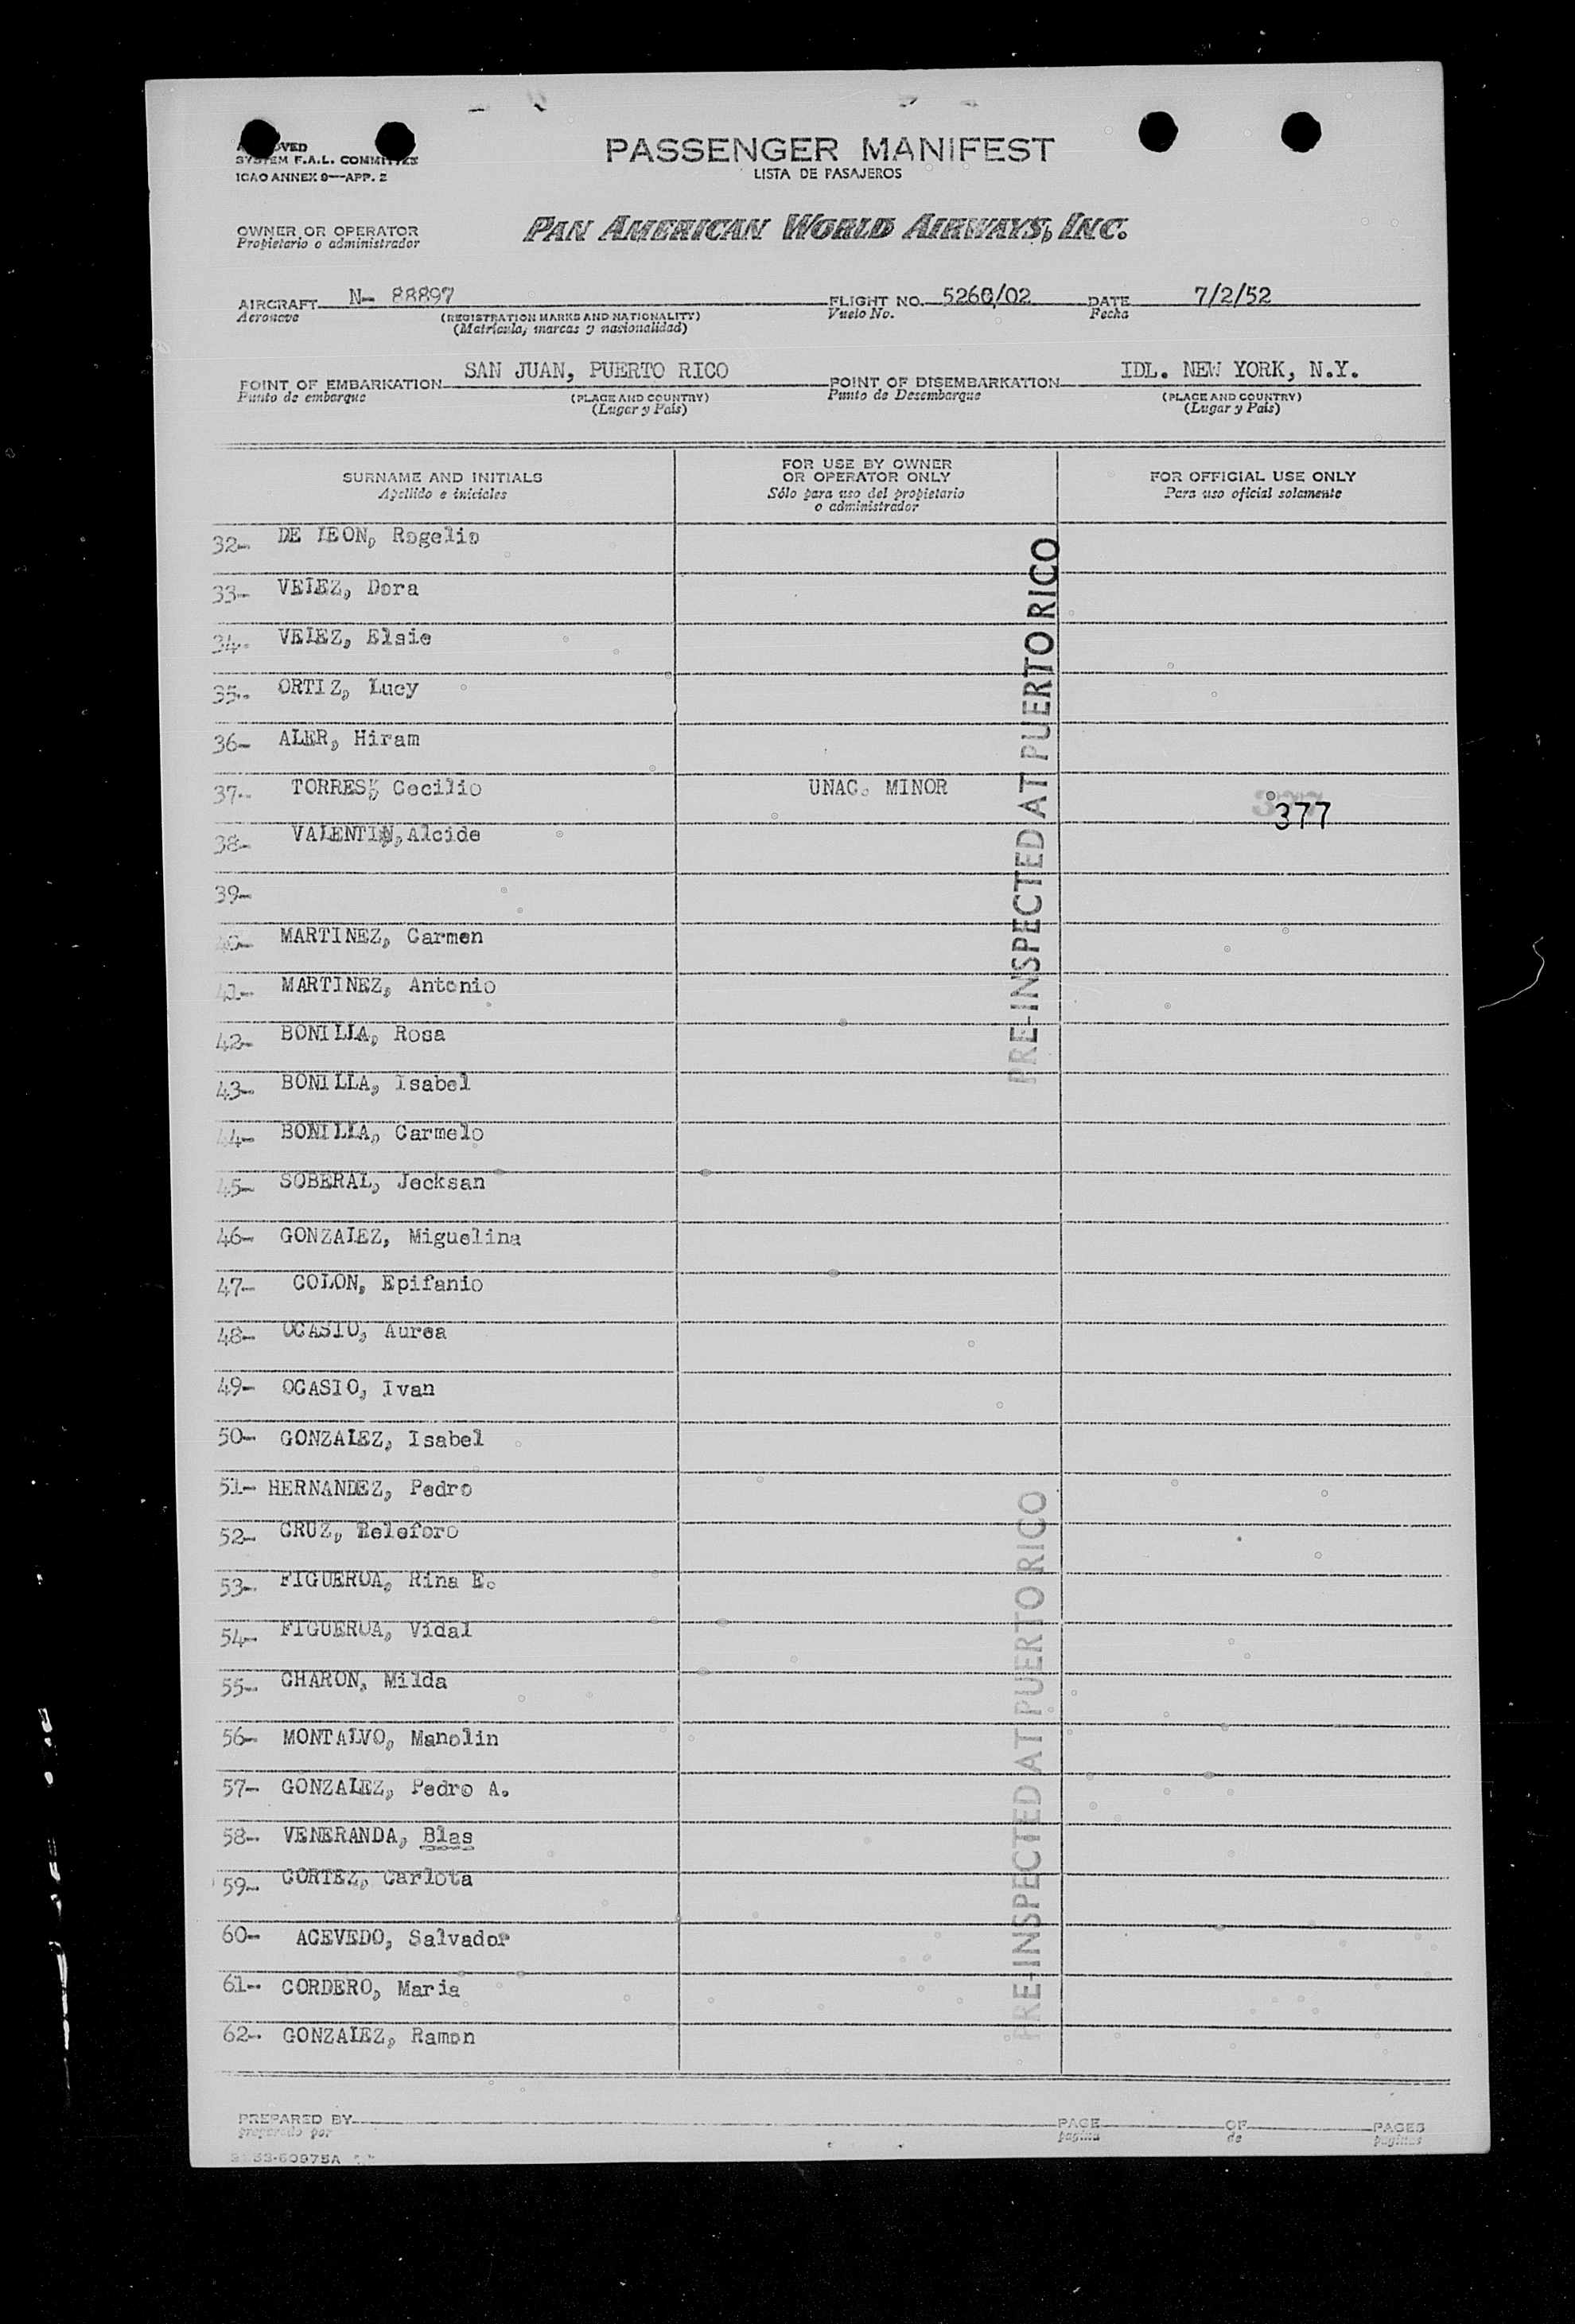 APPROVED
SYSTEM F.A.L. COMMITTEE
ICAO ANNEX 9—APP. 2
PASSENGER MANIFEST
LISTA DE PASAJEROS
OWNER OR OPERATOR
Propietario o administrador
PAN AMERICAN WORLD AIRWAYS, INC.
AIRCRAFT N- 88897 FLIGHT NO. 5260/02 DATE 7/2/52
Aeronave (REGISTRATION MARKS AND NATIONALITY) Vuelo No. Fecha
(Matrícula, marcas y nacionalidad)
POINT OF EMBARKATION SAN JUAN, PUERTO RICO POINT OF DISEMBARKATION IDL. NEW YORK, N.Y.
Punto de embarque (PLACE AND COUNTRY) Punto de Desembarque (PLACE AND COUNTRY)
(Lugar y País) (Lugar y País)
SURNAME AND INITIALS
Apellido e iniciales
FOR USE BY OWNER
OR OPERATOR ONLY
Sólo para uso del propietario
o administrador
FOR OFFICIAL USE ONLY
Para uso oficial solamente
32- DE LEON, Rogelio
33- VELEZ, Dora
34- VELEZ, Elsie
35- ORTIZ, Lucy
36- ALER, Hiram
37- TORRES, Cecilio UNAC. MINOR 377
38- VALENTIN, Alcide
39-
40- MARTINEZ, Carmen
41- MARTINEZ, Antonio
42- BONILLA, Rosa
43- BONILLA, Isabel
44- BONILLA, Carmelo
45- SOBERAL, Jecksan
46- GONZALEZ, Miguelina
47- COLON, Epifanio
48- OCASIO, Aurea
49- OCASIO, Ivan
50- GONZALEZ, Isabel
51- HERNANDEZ, Pedro
52- CRUZ, Teleforo
53- FIGUEROA, Rina E.
54- FIGUEROA, Vidal
55- CHARON, Milda
56- MONTALVO, Manolin
57- GONZALEZ, Pedro A.
58- VENERANDA, Blas
59- CORTEZ, Carlota
60- ACEVEDO, Salvador
61- CORDERO, Maria
62- GONZALEZ, Ramon
PRE-INSPECTED AT PUERTO RICO
PRE-INSPECTED AT PUERTO RICO
PREPARED BY PAGE OF PAGES
preparado por página de páginas